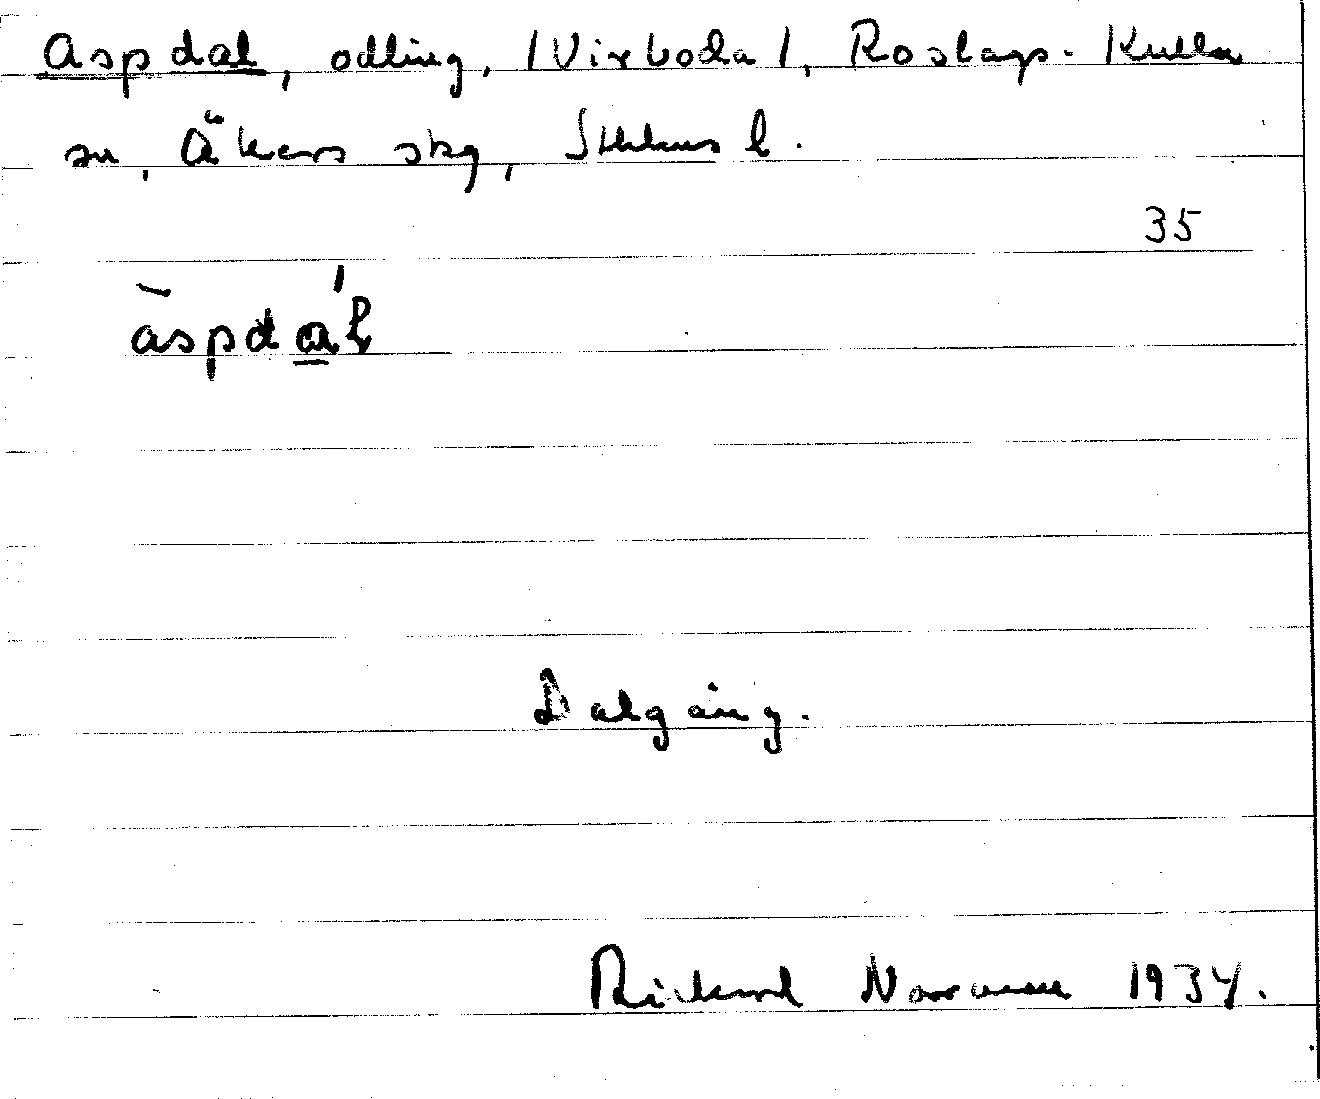 Aspdal, odling, /Virboda/, Roslags-Kulla
sn, Åkers skg, Sthlms l.
35
àspdá̲l
Dalgång.
Rickard Norrman 1934.